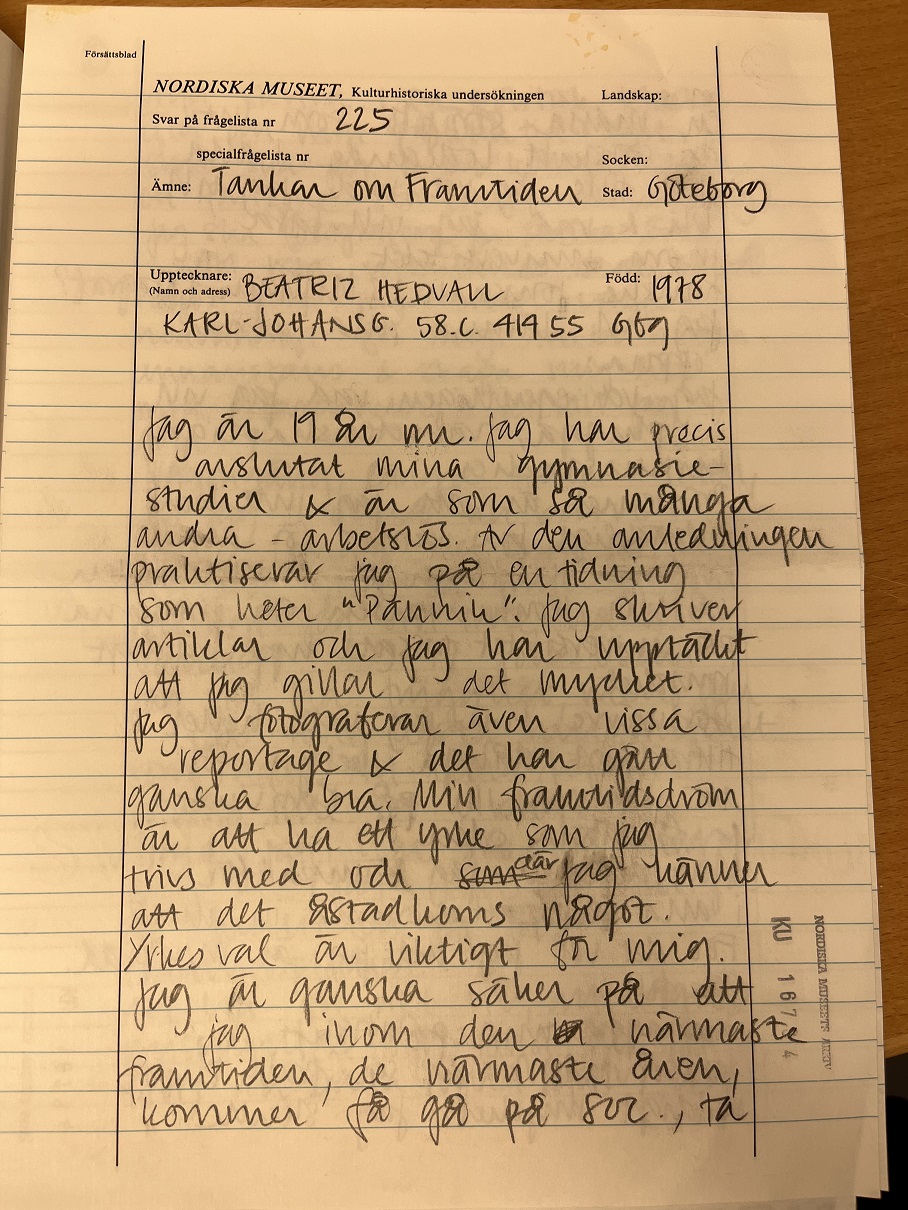 Försättsblad
NORDISKA MUSEET, Kulturhistoriska undersökningen Landskap:
Svar på frågelista nr 225
specialfrågelista nr Socken:
Ämne: Tankar om Framtiden Stad: Göteborg
Upptecknare: BEATRIZ HEDVALL Född: 1978
(Namn och adress)
KARL-JOHANSG. 58.C. 414 55 Gbg
Jag är 19 år nu. Jag har precis
avslutat mina gymnasie-
studier & är som så många
andra - arbetslös. Av den anledningen
praktiserar jag på en tidning
som heter "Pannin". Jag skriver
artiklar och jag har upptäckt
att jag gillar det mycket.
Jag fotograferar även vissa
reportage & det har gått
ganska bra. Min framtidsdröm
är att ha ett yrke som jag
trivs med och som där jag känner
att det åstadkoms något.
Yrkesval är viktigt för mig.
Jag är ganska säker på att
jag inom den närmaste
framtiden, de närmaste åren,
kommer få gå på soc., ta
NORDISKA MUSEETS ARKIV
KU 167 4